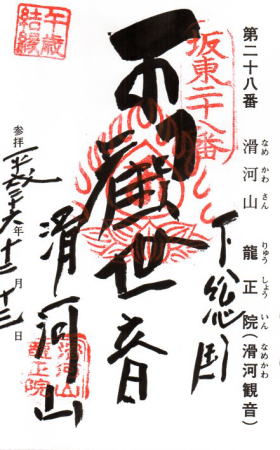 第二十八番　滑河山　龍正院（滑河観音）
なめ かわ さん
りゅう しょう いん
なめかわ
坂東二十八番
下総国
観世音
滑河山
参拝　平成二十六年十二月十三日
午歳
結縁
滑河山
龍正院